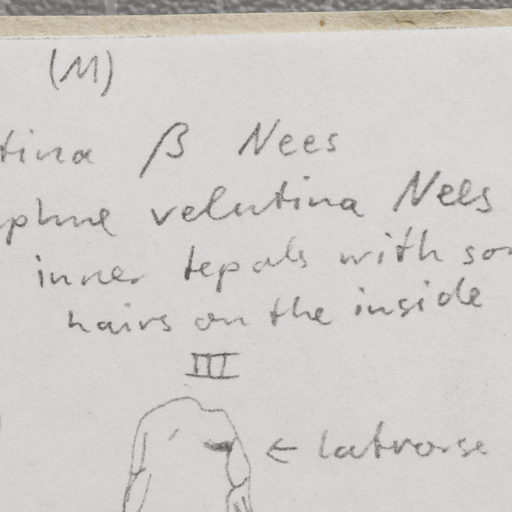 (M)
tina β Nees
phne velutina Nees
inner tepals with som
hairs on the inside
III
← latrorse